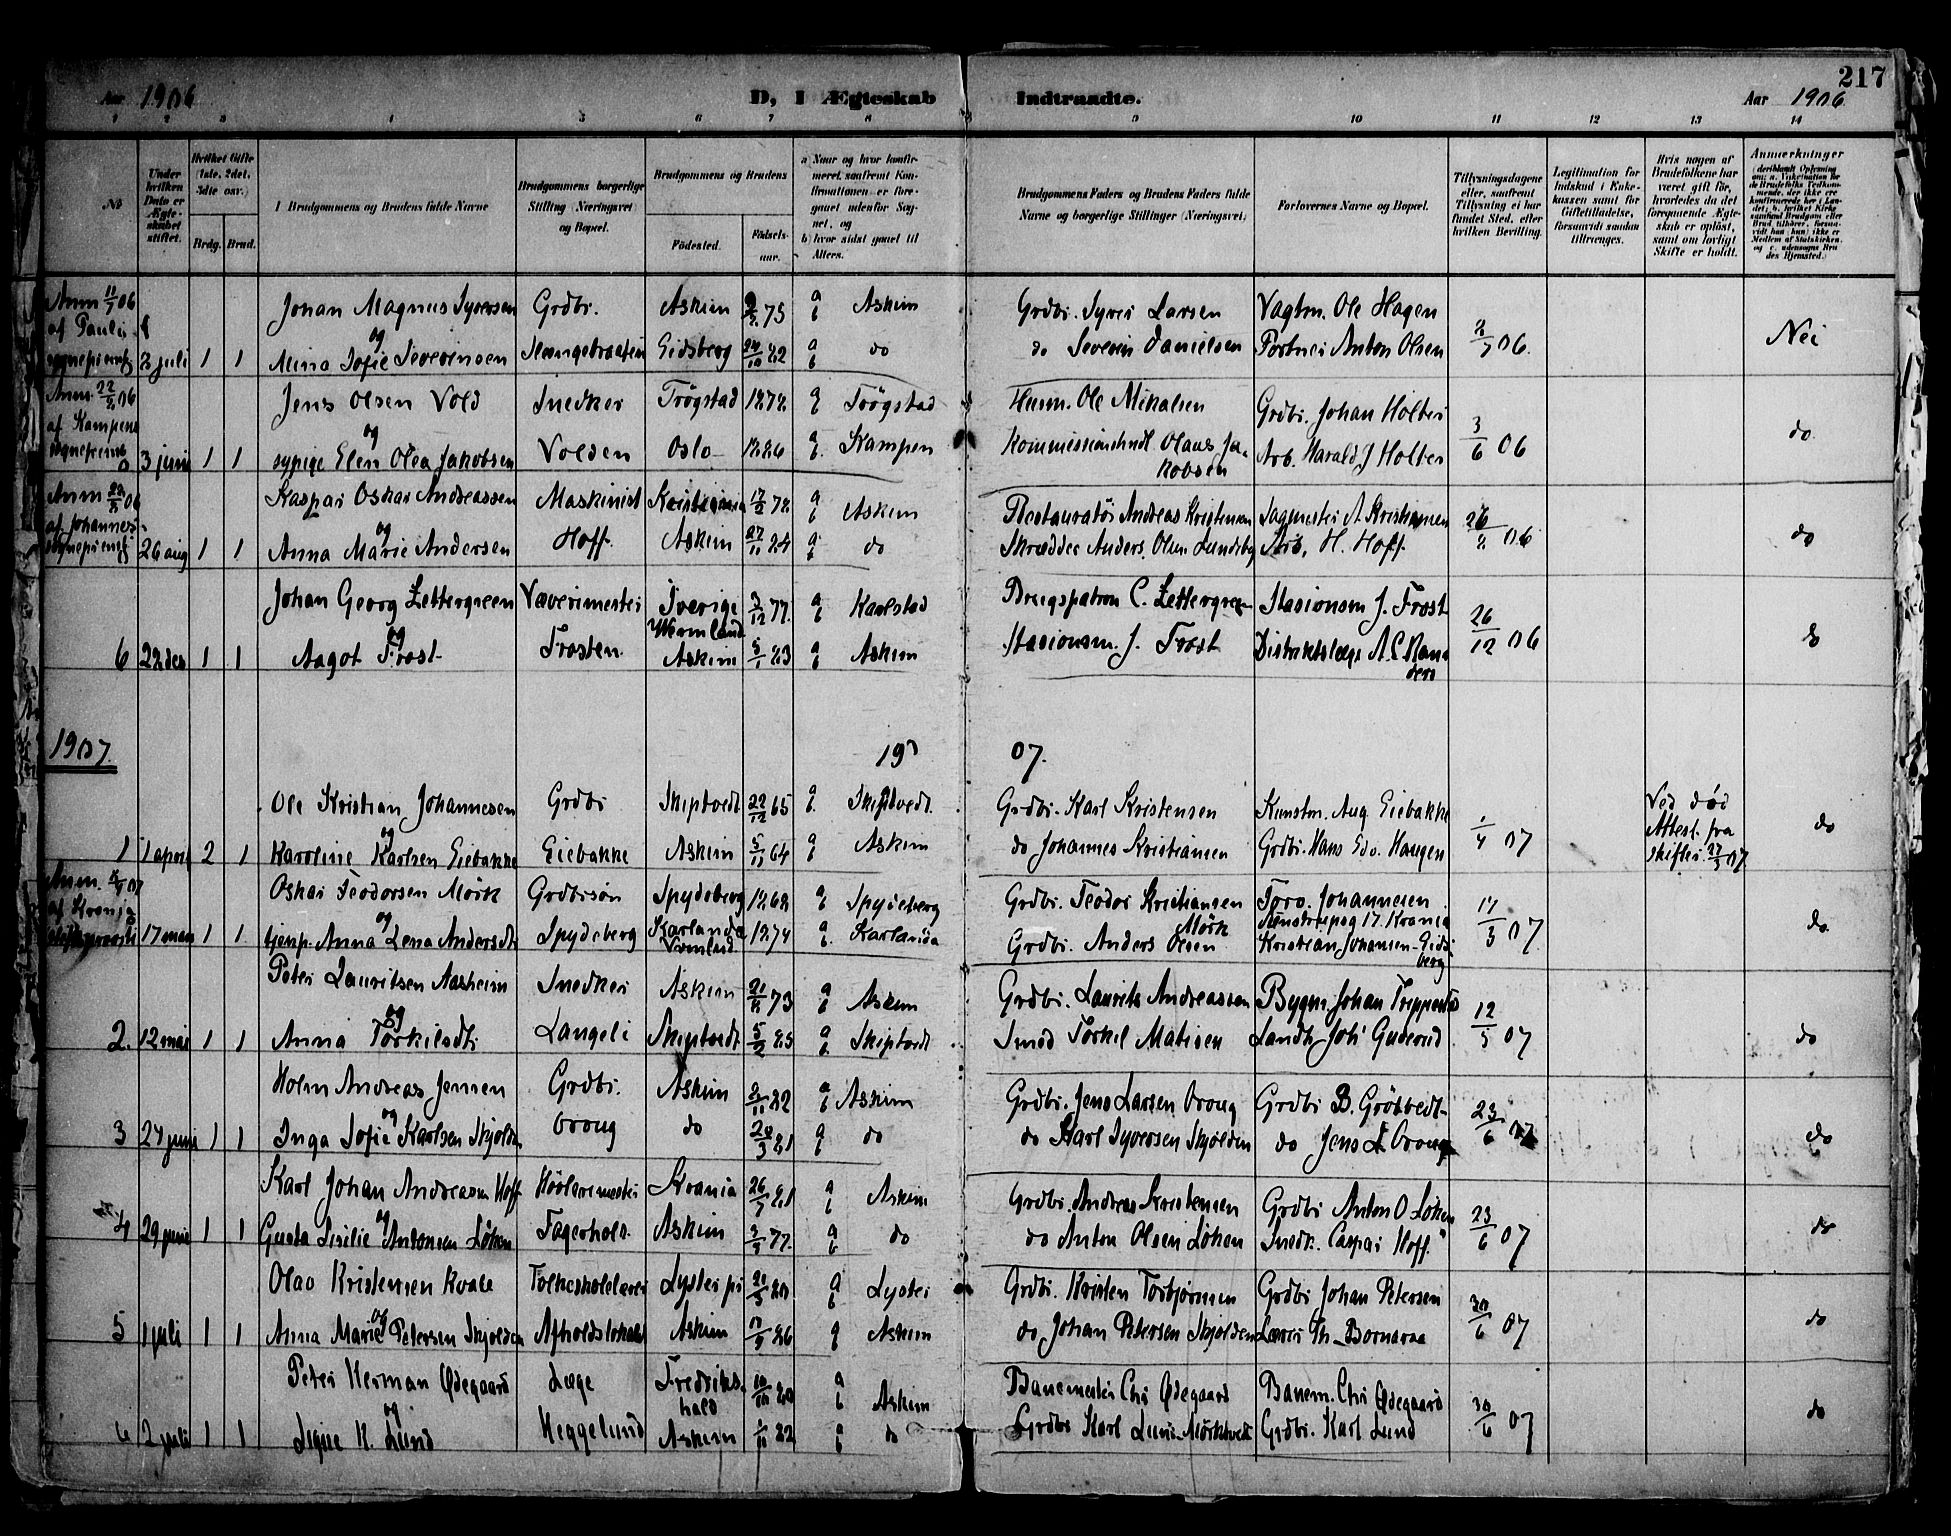 217
Aar 1906 D, I Ægteskab Indtraadte. Aar 1906
1 2 3 4 5 6 7 8 9 10 11 12 13 14
No
Under hvilken Dato er Ægteskabet stiftet.
Hvilket Gifte (1ste, 2det, 3dte osv.) Brdg. Brud.
Brudgommens og Brudens fulde Navne
Brudgommens borgerlige Stilling (Næringsvei) og Bopæl.
Brudgommens og Brudens Födested. Födsels-aar.
a) Naar og hvor konfirmeret, samt om Konfirmationen er foregaaet udenfor Sognet, og b) hvor sidst gaaet til Alters.
Brudgommens Faders og Brudens Faders fulde Navne og borgerlige Stillinger (Næringsvei)
Forlovernes Navne og Bopæl.
Tillysningsdagene eller, saafremt Tillysning ei har fundet Sted, efter hvilken Bevilling.
Legitimation for Indskud i Enkekassen samt for Giftetilladelse, forsaavidt saadan tiltrænges.
Hvis nogen af Brudefolkene har været gift før, hvorledes da det foregaaende Ægteskab er oplöst, samt om lovligt Skifte er holdt.
Anmærkninger
Anm 11/7 06 af Paulus sogneprest
Johan Magnus Syversen Grdbr. Askim 75 a b Askim Grdbr. Syver Larsen Vagtm. Ole Hagen
2 juli 1 1 og Mina Sofie Severinsen Slangebraaten Eidsberg 82 a b do do Severin Danielsen Portner Anton Olsen 06. Nei
Anm. 22/8 06 af Kampens sogneprest
Jens Olsen Vold Snedker Trøgstad 1878 a b Trøgstad Husm. Ole Mikalsen Grdbr. Johan Holter
3 juni 1 1 og sypige Elen Olea Jakobsen Volden Oslo 1886 a b. Kampen Kommissionshndl Olaus Jakobsen Arb. Harald J Holter 3/6 06 do.
Anm 06 af Johannes sogneprest
Kaspar Oskar Andreassen Maskinist Kristiania 78 a b Askim Restauratør Andreas Kristensen Sagmester A. Kristiansen
26 aug 1 1 og Anna Marie Andersen Hoff. Askim 27/11 84 a b do Skrædder Anders Olsen Lundeby Arb. H. Hoff. 26/8 06 do
Johan Georg Zettergreen Væverimester Sverige Wermland 3/12 77. a b Karlstad Brugspatron C. Zettergreen Stasionsm J. Frost
6 22 des 1 1 og Aagot Frost Frosten. Askim 5/1 83 a b Askim Stasionsm. J. Frost Distriktslæge A. C. Randers 26/12 06 do
1907. 19 07.
Ole Kristian Johannesen Grdbr Skiptvedt 22/12 65 a b. Skiptvedt. Grdbr. Karl Kristensen Kunstm. Aug Eiebakke Ved død Attest fra skifter. 27/3 07
1 1 april 2 1 og Karoline Karlsen Eiebakke Eiebakke Askim 5/11 64 a b Askim do Johannes Kristiansen Grdbr. Hans Edv. Haugen 1/4 07 do
Anm. 07 af Krania
Oskar Teodorsen Mörk Grdbrsön Spydeberg 1868 a b Spydeberg Grdbr. Teodor Kristiansen Mörk Torv. Johannesen 17 Krania
17 mars 1 1 og tjenp. Anna Lena Andersdt. Spydeberg Karlanda Vermland 1874 a b. Karlanda Grdbr. Anders Olsen Kristian Johansen Eidsberg 17/3 07 do
Peter Lauritsen Aasheim Snedker Askim 73 a b Askim Grdbr. Laurits Andreassen Bygm. Johan Treppestad
2. 12 mai 1 1 og Anna Torkilsdtr Langeli Skiptvedt 5/2 85 a b. Skiptvedt Smed Torkel Matisen Landh. Joh Guderud 12/5 07 do
Holm Andreas Jensen Grdbr. Askim 82 a b Askim Grdbr. Jens Larsen Oroug Grdbr B. Grötvedt
3 24 juni 1 1 og Inga Sofie Karlsen Skjolden Oroug do 20/3 81 a b do do Karl Syversen Skjolden do Jens L Oroug 23/6 07 do
Karl Johan Andreasen Hoff Høvlerimester Krania 26/7 81 a b Askim Grdbr. Andreas Kristensen Grdbr Anton O Löken
4 29 juni 1 1 og Gusta Sesilie Antonsen Löken Fagerhold Askim 77. a b do do Anton Olsen Löken Snedk. Caspar Hoff. 23/6 07 do
Olav Kristensen Kvale Folkeskolelærer Lyster pr 80 a b Lyster Grdbr. Kristen Torbjörnsen Grdbr Johan Petersen
5 1 juli 1 1 og Anna Marie Petersen Skjolden Afholdslokalet Askim 86 a b Askim do Johan Petersen Skjolden Lærer Th. Bornaraa 30/6 07 do
Peter Herman Ødegaard Læge Fredrikshald 10/10 80 a b Askim Banemester Chr Ødegaard Banem. Chr Ødegaard
6 2 juli 1 1 og Signe K. Lund Heggelund Askim 82 a b do Grdbr Karl Lund Mörktvedt Grdbr. Karl Lund 30/6 07 do